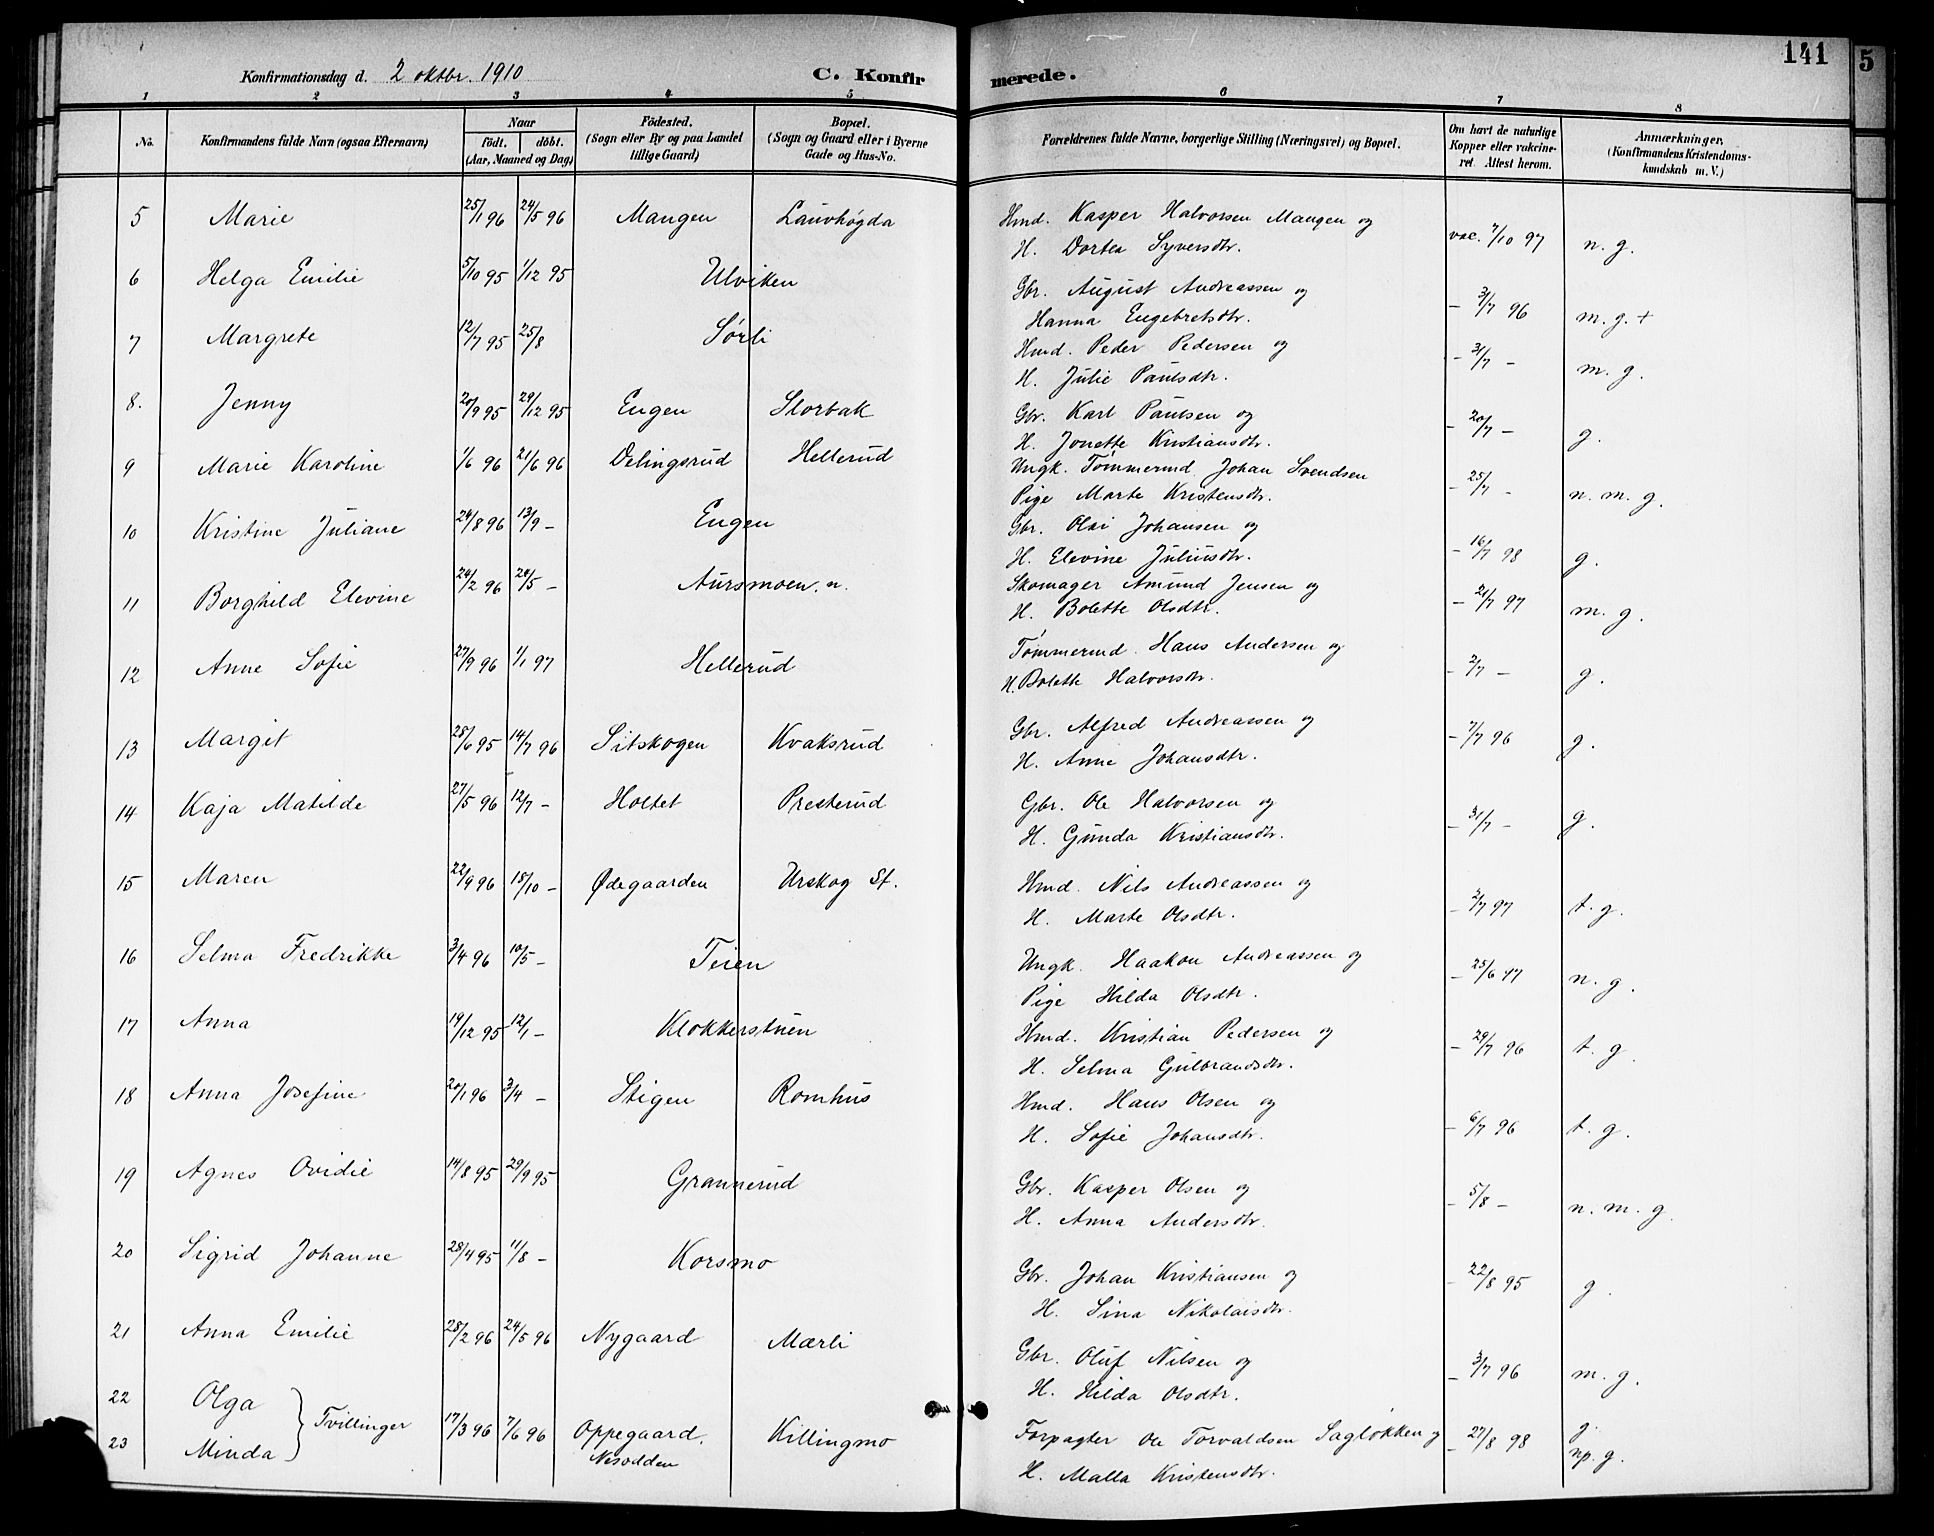 141
5
Konfirmationsdag d. 2 oktbr. 1910
C. Konfirmerede.
1 2 3 4 5 6 7 8
No.
Konfirmandens fulde Navn (ogsaa Efternavn)
Naar
födt. döbt.
(Aar, Maaned og Dag)
Födested.
(Sogn eller By og paa Landet
tillige Gaard)
Bopæl.
(Sogn og Gaard eller i Byerne
Gade og Hus-No.
Forældrenes fulde Navne, borgerlige Stilling (Næringsvei) og Bopæl.
Om havt de naturlige
Kopper eller vakcine-
ret. Attest herom.
Anmærkninger.
(Konfirmandens Kristendoms-
kundskab m. V.)
5 Marie 25/1 96 24/5 96 Mangen Lauvhøgda Hmd. Kasper Halvorsen Mangen og
H. Dortea Syversdtr. vac. 7/10 97 n. g.
6 Helga Emilie 5/10 95 1/12 95 Ulviken Gbr. August Andreassen og
Hanna Engebretsdtr. - 3/7 96 m. g. +
7 Margrete 12/7 95 25/8 Sørli Hmd. Peder Pedersen og
H. Julie Paulsdtr. - 31/7 - m. g.
8. Jenny 20/9 95 29/12 95 Engen Storbak Gbr. Karl Paulsen og
H. Jonette Kristiansdtr. - 20/7 - g.
9 Marie Karoline 1/6 96 21/6 96 Delingsrud Hellerud Ungk. Tømmermd. Johan Svendsen
Pige Marte Kristensdtr. - 25/7 - n. m. g.
10 Kristine Juliane 24/8 96 13/9 - Engen Gbr. Olai Johansen og
H. Elevine Juliusdtr. - 16/7 98 g.
11 Borghild Elevine 24/2 96 24/5 - Aursmoen. n. Skomager Amund Jensen og
H. Bolette Olsdtr. - 21/7 97 m. g.
12 Anne Sofie 27/9 96 1/1 97 Hellerud Tømmermd. Hans Andersen og
H. Bolette Halvorsdtr. - 2/7 - g.
13 Margit 28/6 95 14/7 96 Sitskogen Kvaksrud Gbr. Alfred Andreassen og
H. Anne Johansdtr. - 7/7 96 g.
14 Kaja Matilde 27/5 96 12/7 - Holtet Presterud Gbr. Ole Halvorsen og
H. Gunda Kristiansdtr. - 31/7 - g.
15 Maren 22/9 96 18/10 - Ødegaarden Urskog St. Hmd. Nils Andreassen og
H. Marte Olsdtr. - 2/7 97 t. g.
16 Selma Fredrikke 3/4 96 10/5 - Teien Ungk. Haakon Andreassen og
Pige Hilda Olsdtr. - 25/6 97 n. g.
17 Anna 19/12 95 12/1 - Klokkerstuen Hmd. Kristian Pedersen og
H. Selma Gulbrandsdtr. - 29/7 96 t. g.
18 Anna Josefine 20/1 96 3/4 - Stigen Romhus Hmd. Hans Olsen og
H. Sofie Johansdtr. - 6/7 96 t. g.
19 Agnes Ovidie 14/8 95 29/9 95 Grannerud Gbr. Kasper Olsen og
H. Anna Andersdtr. - 5/8 - n. m. g.
20 Sigrid Johanne 28/4 95 11/8 - Korsmo Gbr. Johan Kristiansen og
H. Sina Nikolaisdtr. - 22/8 95 g.
21 Anna Emilie 28/2 96 24/5 96 Nygaard Mærli Gbr. Oluf Nilsen og
H. Hilda Olsdtr. - 3/7 96 m. g.
22 Olga
23 Minda } Tvillinger 17/3 96 7/6 96 Oppegaard.
Nesodden Killingmo Forpagter Ole Torvaldsen Sagløkken og
H. Malla Kristensdtr. - 27/8 98 g.
np. g.